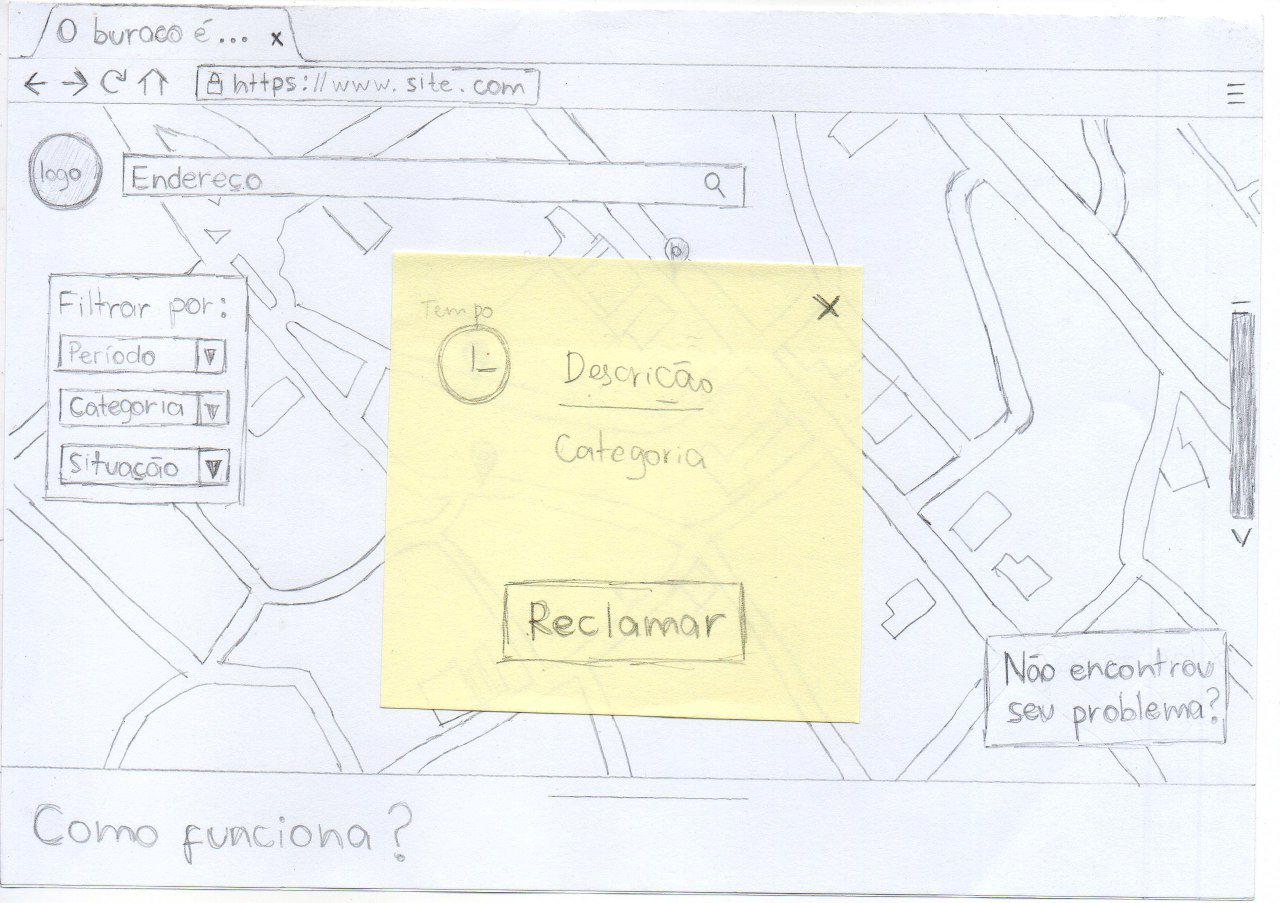 O buraco é... x
https://www.site.com
logo
Endereço
b
Filtrar por:
Período
Categoria
Situação
Tempo
X
Descrição
Categoria
Reclamar
Não encontrou
seu problema?
Como funciona?